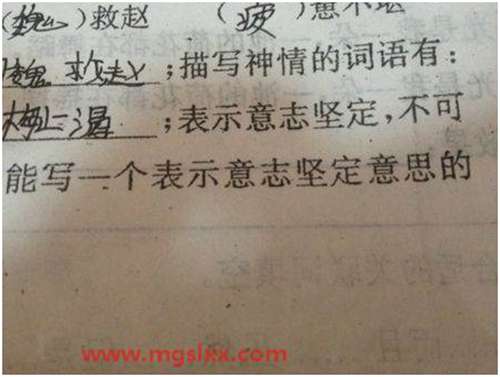 (魏)救赵 (疲)惫不堪
魏救赵;描写神情的词语有:
梅止渴;表示意志坚定,不可
能写一个表示意志坚定意思的
www.mgslxx.com